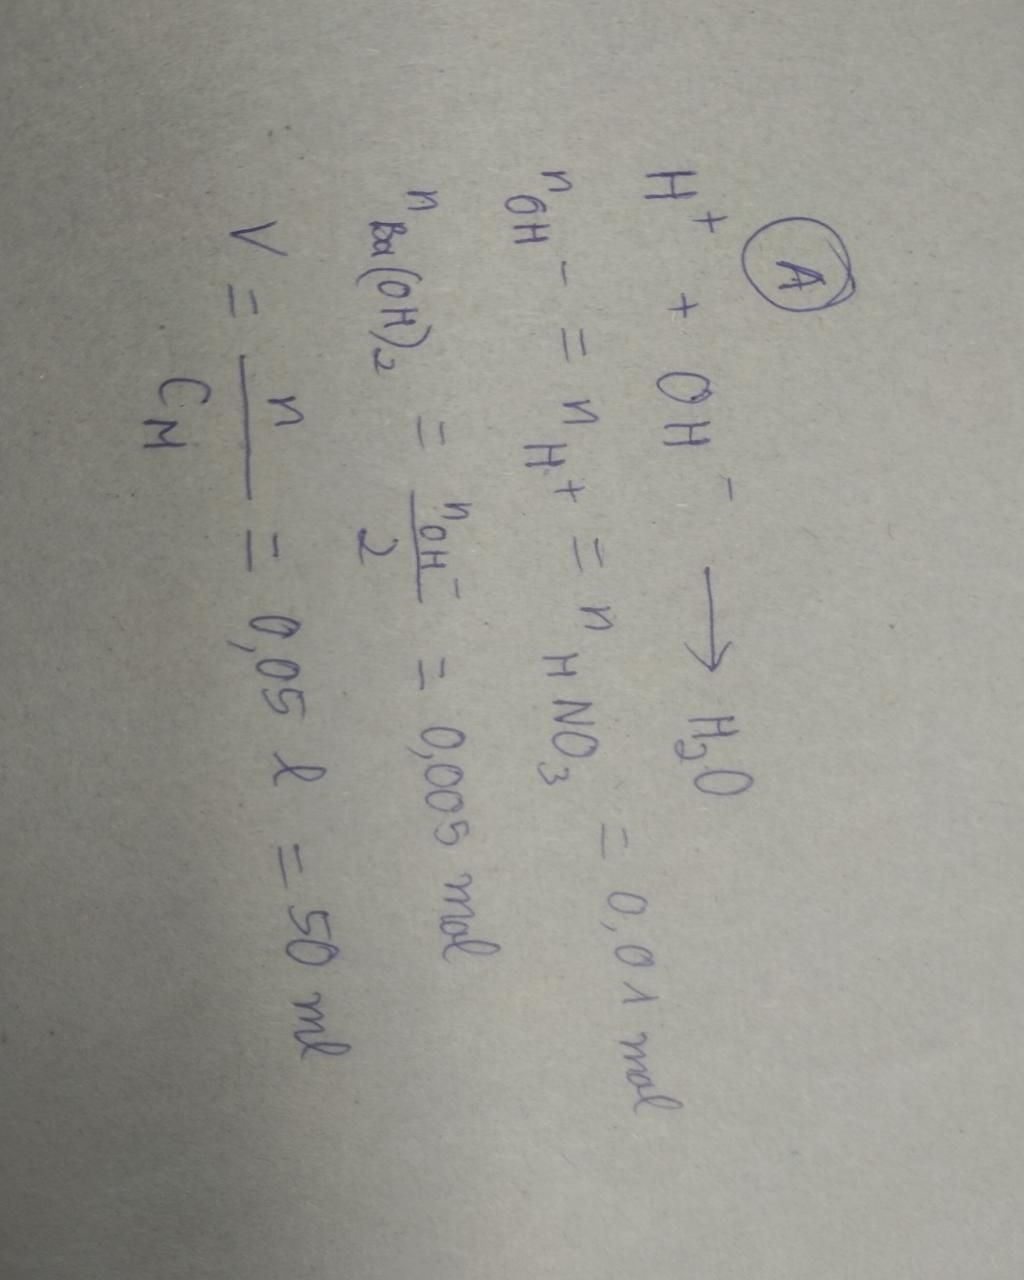 A
H⁺ + OH⁻ → H₂O
n OH⁻ = n H⁺ = n HNO₃ = 0,01 mol
n Ba(OH)₂ = n OH⁻ / 2 = 0,005 mol
V = n / C M = 0,05 l = 50 ml